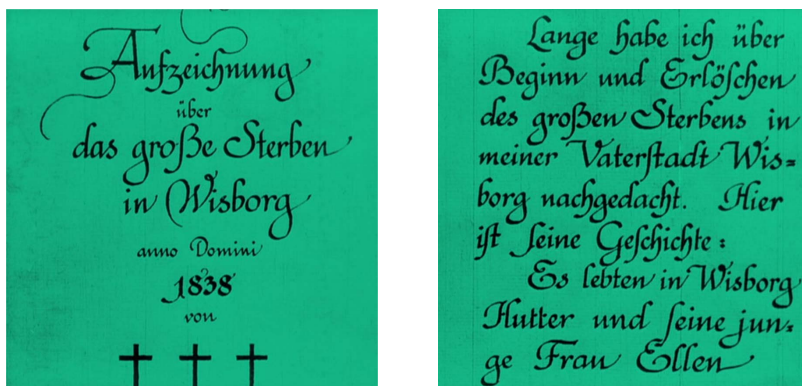 Aufzeichnung
über
das große Sterben
in Wisborg
anno Domini
1838
von
Lange habe ich über
Beginn und Erlöschen
des großen Sterbens in
meiner Vaterstadt Wis=
borg nachgedacht. Hier
ist seine Geschichte:
Es lebten in Wisborg
Hutter und seine jun=
ge Frau Ellen